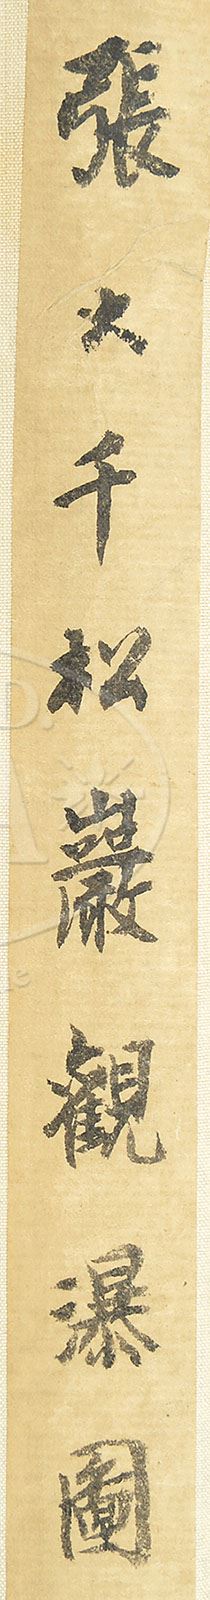 張大千松巖觀瀑圖